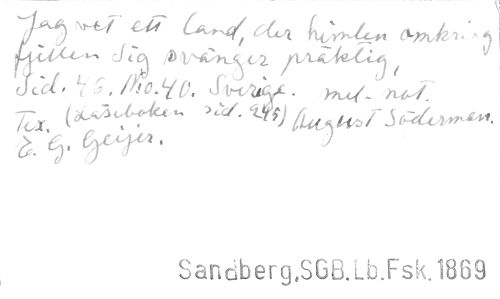 Jag vet ett land, der himlen omkring
fjellen sig svänger präktig,
Sid. 46. No. 40. Sverige. mel- not.
Tex. (Läseboken sid. 245) August Söderman.
E. G. Geijer.
Sandberg,SGB.Lb.Fsk.1869